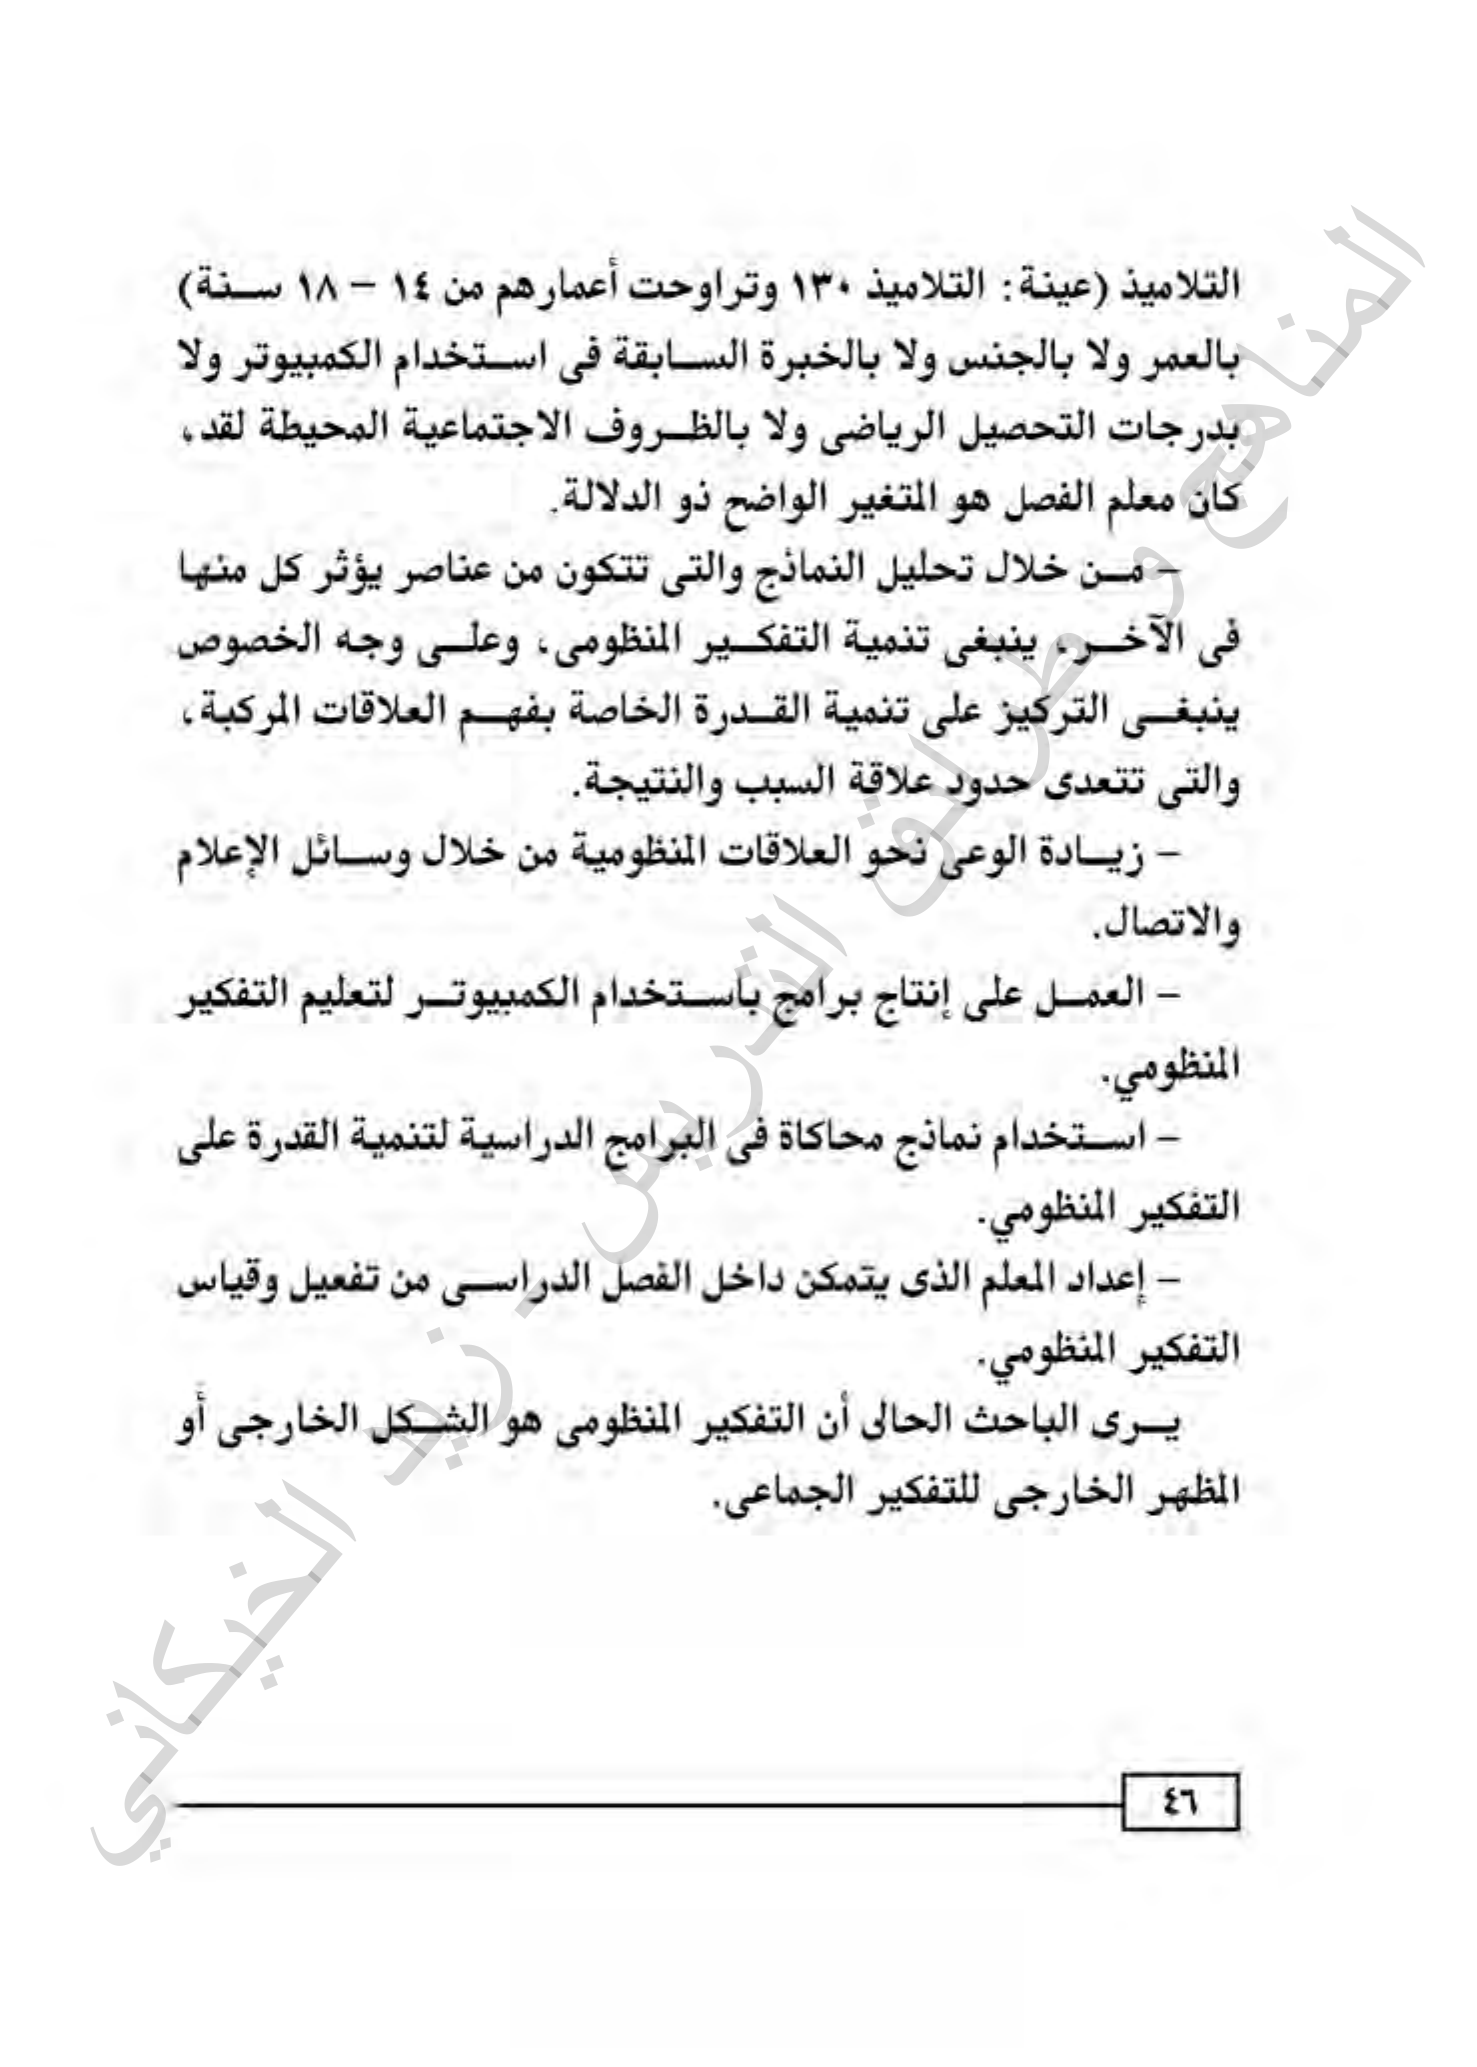 التلاميذ (عينة: التلاميذ ١٣٠ وتراوحت أعمارهم من ١٤ – ١٨ سنة)
بالعمر ولا بالجنس ولا بالخبرة السابقة فى استخدام الكمبيوتر ولا
بدرجات التحصيل الرياضى ولا بالظروف الاجتماعية المحيطة لقد،
كان معلم الفصل هو المتغير الواضح ذو الدلالة.
– من خلال تحليل النماذج والتى تتكون من عناصر يؤثر كل منها
فى الآخر، ينبغى تنمية التفكير المنظومى، وعلى وجه الخصوص
ينبغى التركيز على تنمية القدرة الخاصة بفهم العلاقات المركبة،
والتى تتعدى حدود علاقة السبب والنتيجة.
– زيادة الوعى نحو العلاقات المنظومية من خلال وسائل الإعلام
والاتصال.
– العمل على إنتاج برامج باستخدام الكمبيوتر لتعليم التفكير
المنظومي.
– استخدام نماذج محاكاة فى البرامج الدراسية لتنمية القدرة على
التفكير المنظومي.
– إعداد المعلم الذى يتمكن داخل الفصل الدراسى من تفعيل وقياس
التفكير المنظومي.
يرى الباحث الحالى أن التفكير المنظومى هو الشكل الخارجى أو
المظهر الخارجى للتفكير الجماعى.
٤٦
المناهج وطرائق التدريس - زيد الخيكاني